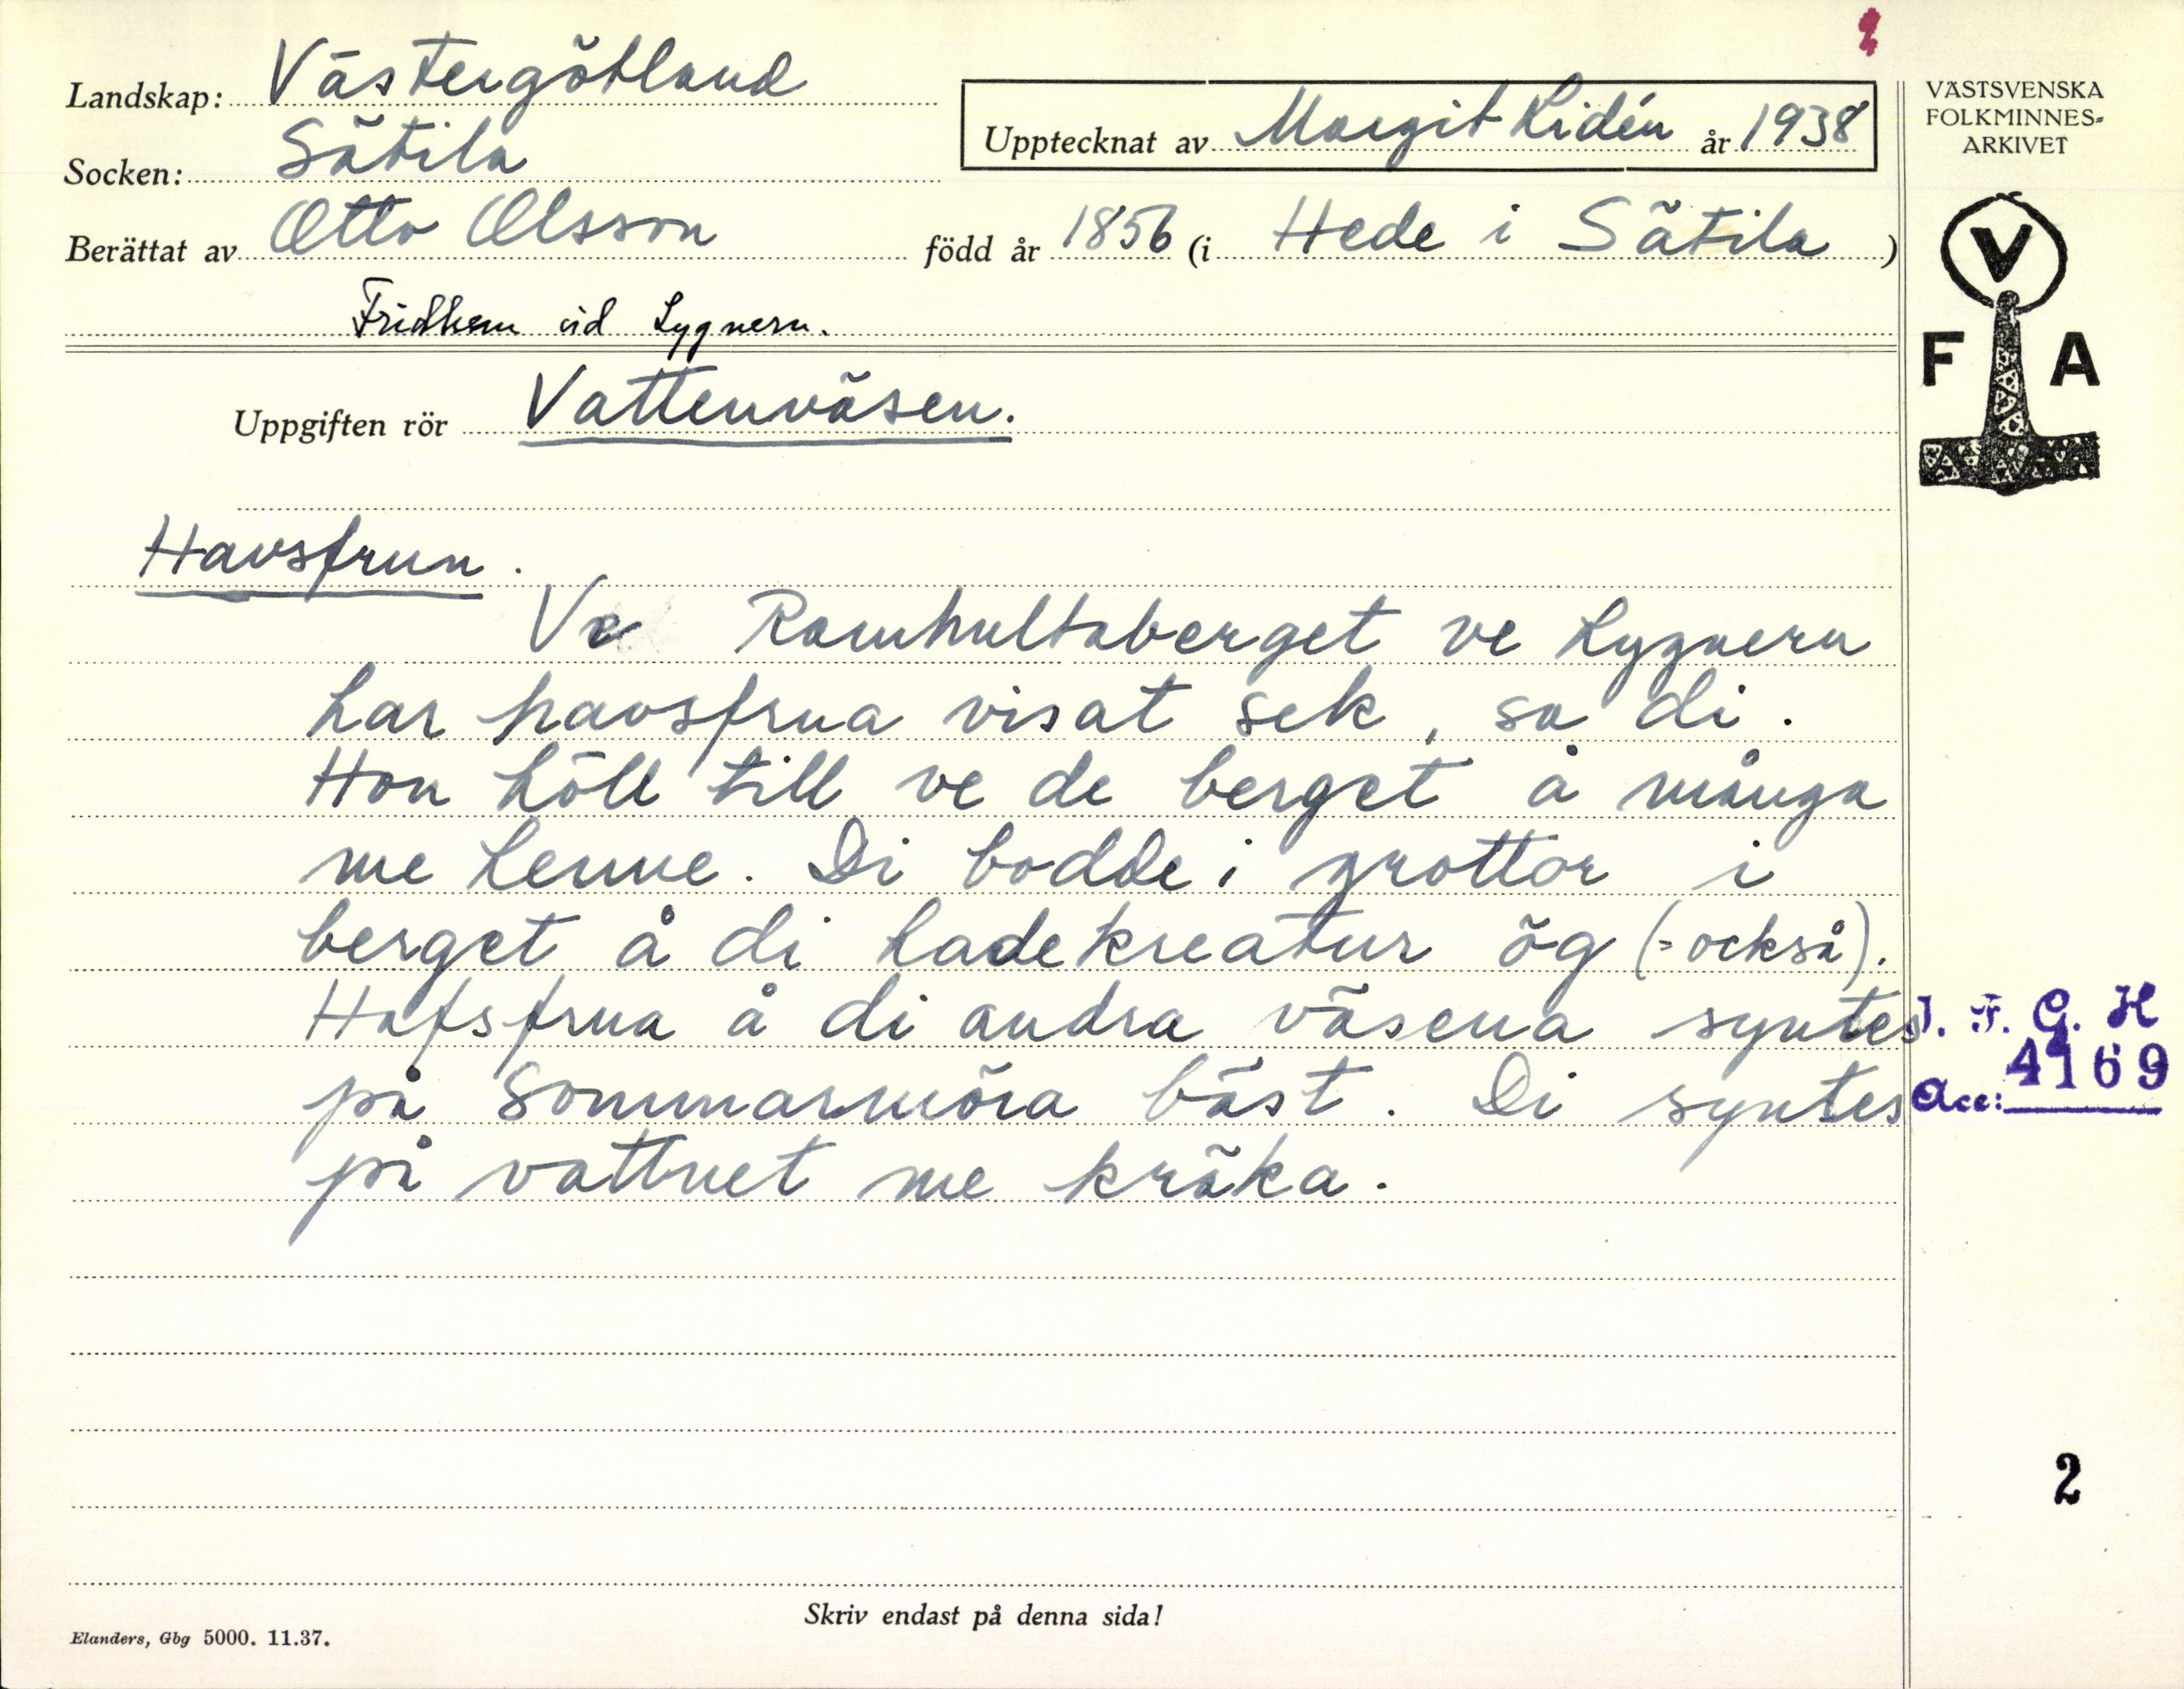 Landskap: Västergötland
Socken: Sätila
Upptecknat av Margit Lidén år 1938
Berättat av Otto Olsson född år 1856 (i Hede i Sätila)
Fridhem vid Lygnern.
VÄSTSVENSKA
FOLKMINNES-
ARKIVET
V
F A
Uppgiften rör Vattenväsen.
Havsfrun.
Ve Ramhultaberget ve Lygnern
har havsfrua visat sek, sa di.
Hon höll till ve de berget å många
me henne. Di bodde i grottor i
berget å di hade kreatur ög (= också).
Hafsfrua å di andra väsena syntes
på sommarmöra bäst. Di syntes
på vattnet me kräka.
I. F. G. H
4169
Acc:
2
Skriv endast på denna sida!
Elanders, Gbg 5000. 11.37.